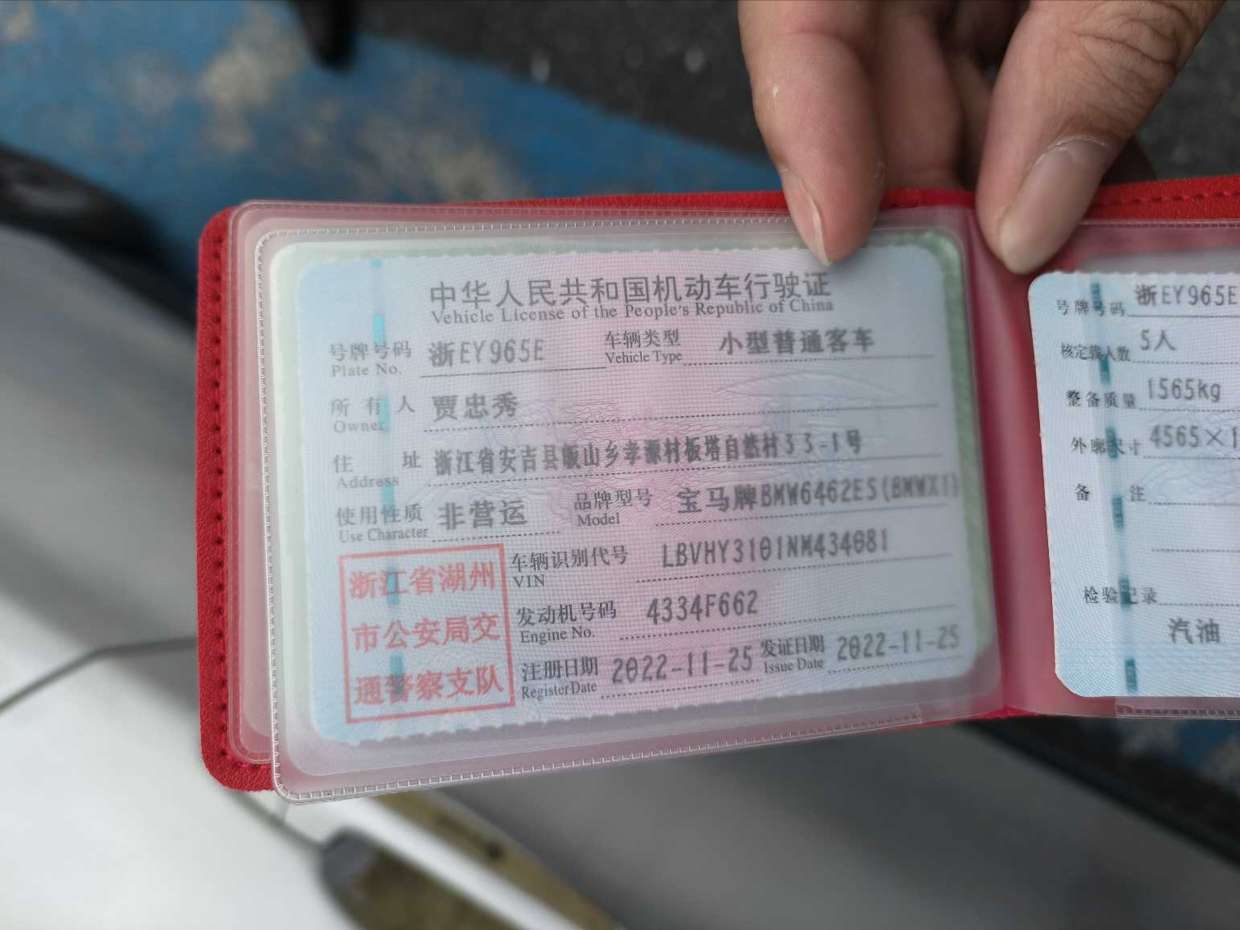 中华人民共和国机动车行驶证
Vehicle License of the People's Republic of China
号牌号码 浙EY965E 车辆类型 小型普通客车
Plate No. Vehicle Type
所有人 贾忠秀
Owner
住址 浙江省安吉县鄣山乡孝源村板塔自然村33-1号
Address
使用性质 非营运 品牌型号 宝马牌BMW6462ES(BMWX1)
Use Character Model
浙江省湖州
市公安局交
通警察支队
车辆识别代号 LBVHY3101NM434081
VIN
发动机号码 4334F662
Engine No.
注册日期 2022-11-25 发证日期 2022-11-25
Register Date Issue Date
号牌号码 浙EY965E
核定载人数 5人
整备质量 1565kg
外廓尺寸 4565×1
备注
检验记录
汽油